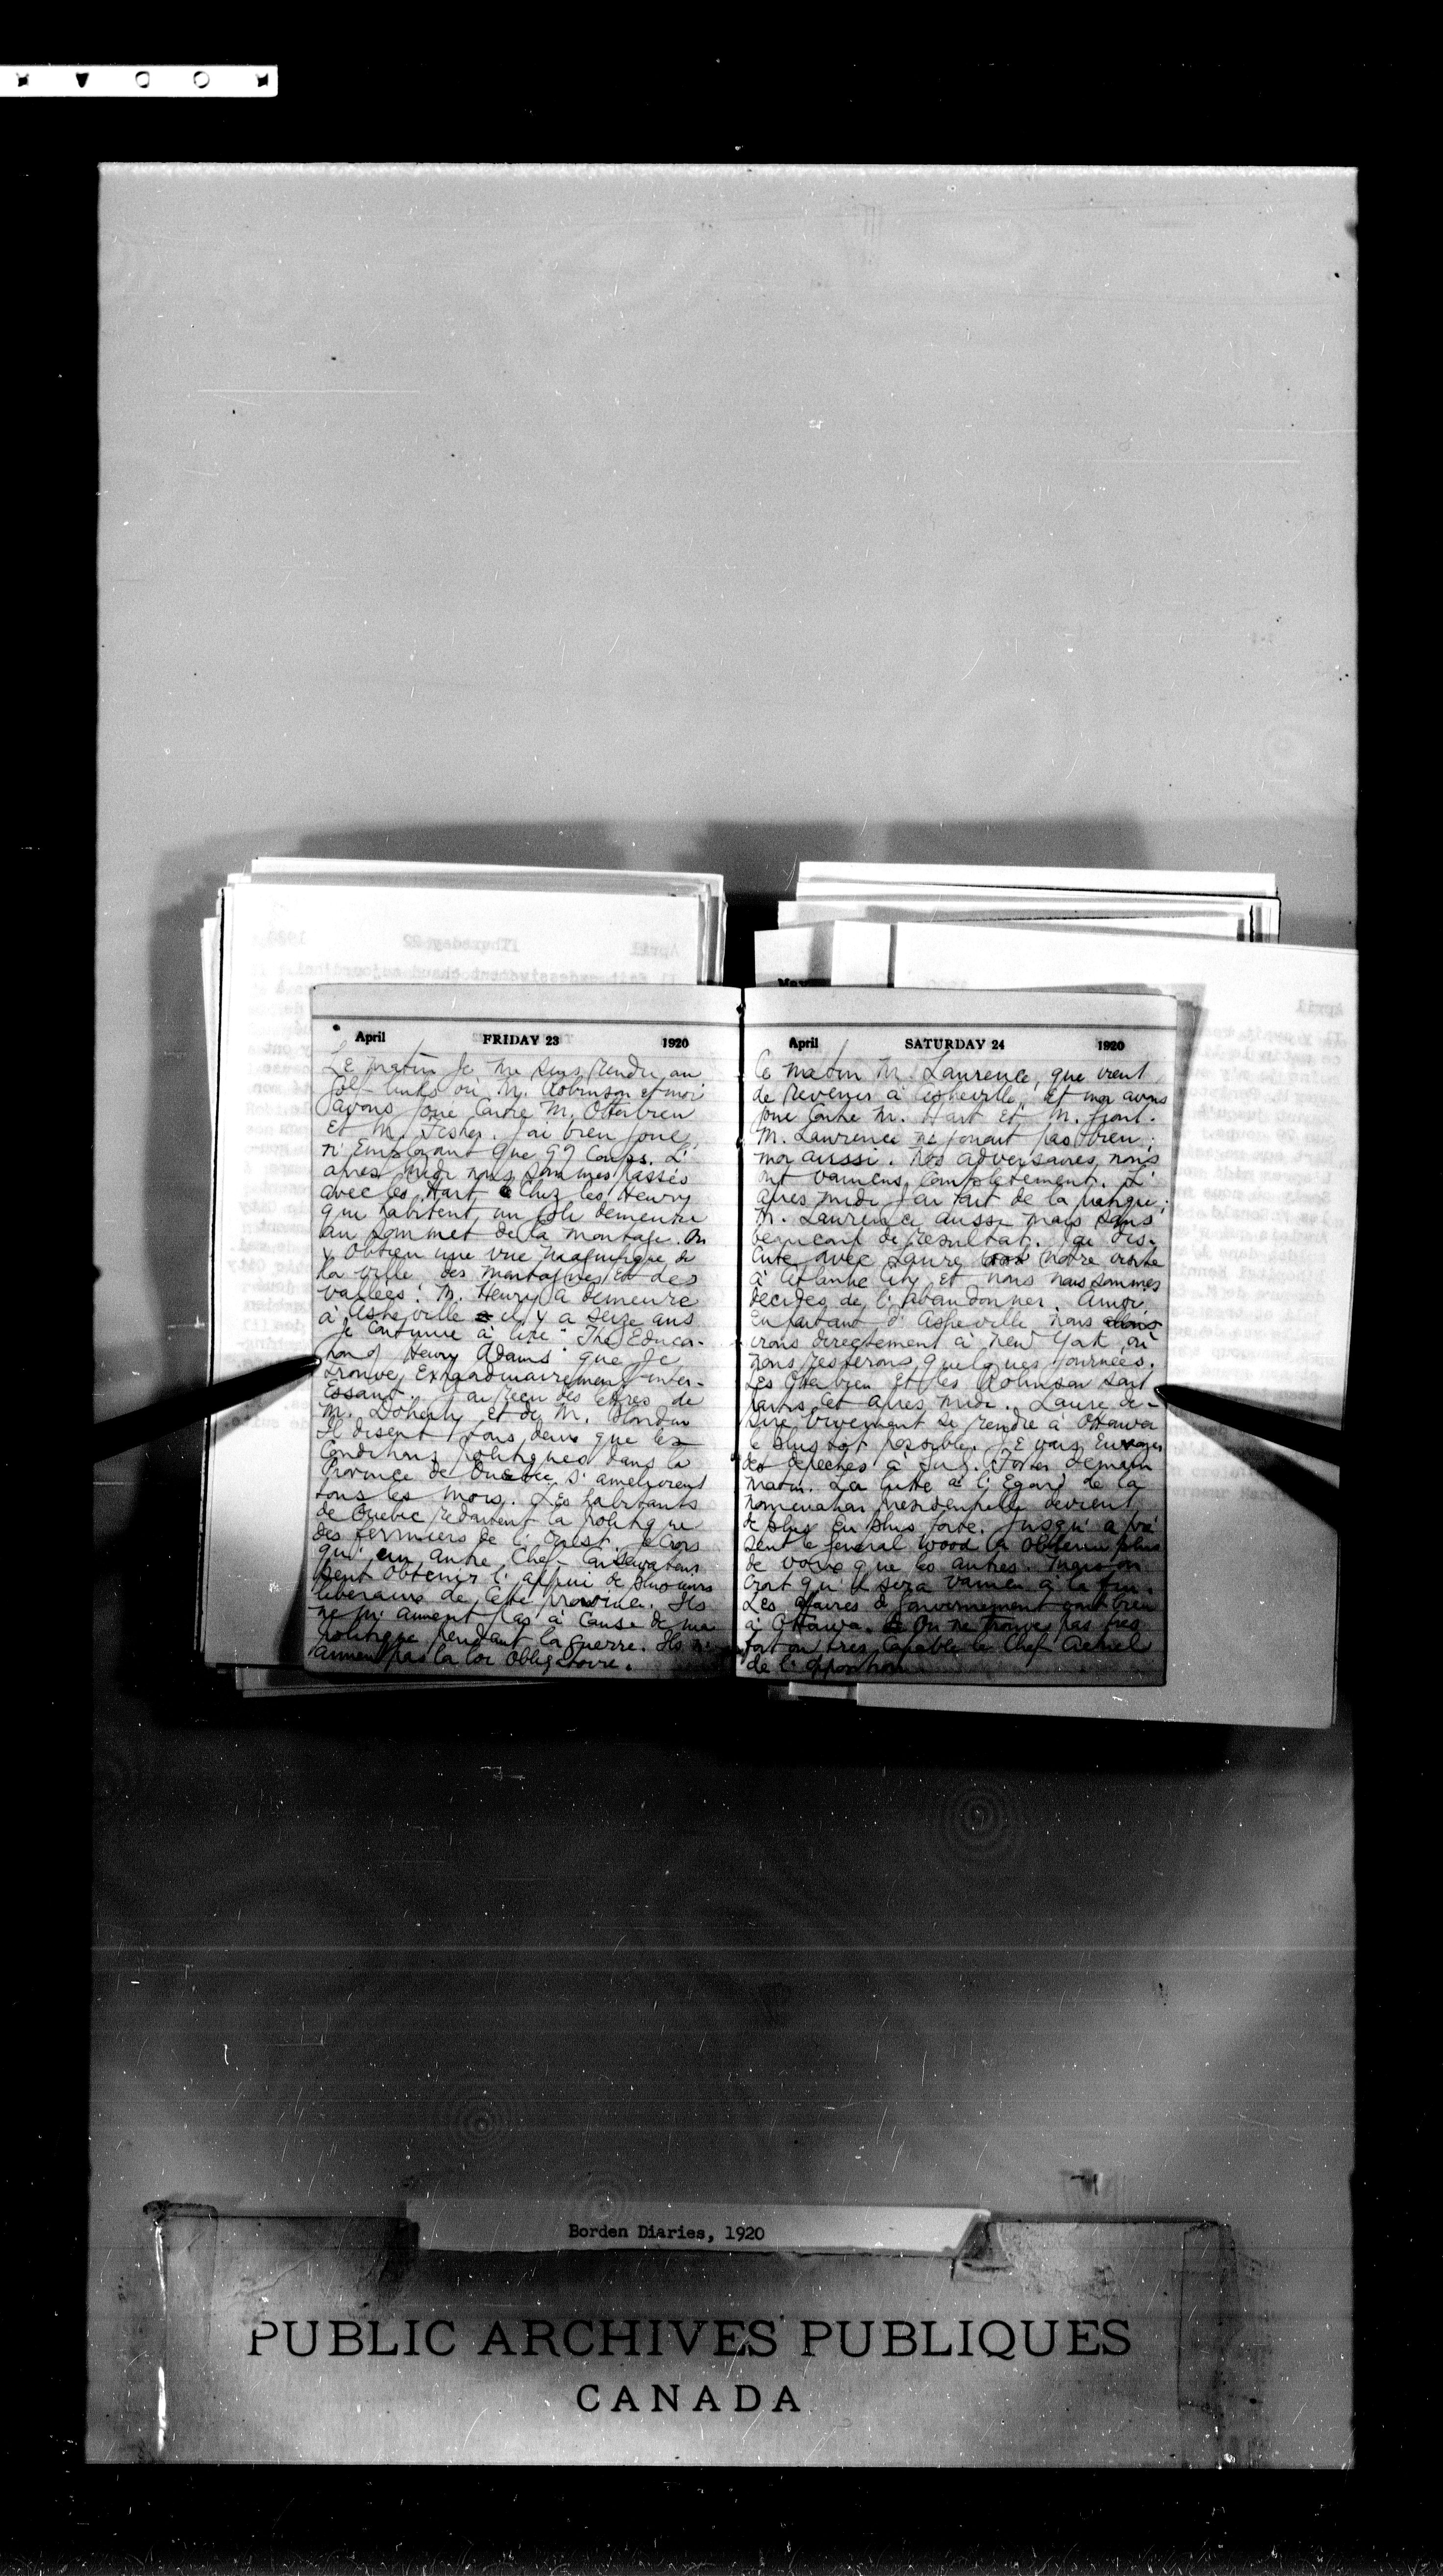 April FRIDAY 23 1920
Le matin je me suis rendu au
golf links où M. Robinson et moi
avons joué contre M. Otterbien
et M. Fisher. J'ai bien joué,
n'employant que 97 coups. L'
après midi nous sommes passés
avec les Hart chez les Henry
qui habitent un joli demeure
au sommet de la montage. On
y obtien une vue magnifique de
la ville, des montagnes et des
vallées. M. Henry a demeuré
à Asheville il y a seize ans
Je continue à lire "The Educa-
tion of Henry Adams" que je
trouve extraordinairement inter-
essant. J'ai reçu des lettres de
M. Doherty et de M. Blondin
Il disent tous deux que les
conditions politiques dans la
Province de Quebec s'ameliorent
tous les mois. Les habitants
de Quebec redoutent la politique
des fermiers de l'Ouest. Je crois
qu'un autre chef conservateur
peut obtenir l'appui de plusieurs
liberaux de cette province. Ils
ne m'aiment pas à cause de ma
politique pendant la guerre. Ils n'
aiment pas la loi obligatoire.
April SATURDAY 24 1920
Ce matin M. Laurence, que vient
de revenir à Asheville, et moi avons
joué contre M. Hart et M.
M. Lawrence ne jouait pas bien;
moi aussi. Nos adversaires nous
ont vaincus completement. L'
après midi j'ai fait de la
M. Laurence aussi mais sans
beaucoup de resultat. J'ai dis-
cuté avec Laure notre visite
à Atlantic City et nous nous sommes
decidés de l'abandonner. Ainsi
en partant d'Asheville nous allons
irons directement à New York où
nous resterons quelques journées.
Les Otterbien et les Robinson sont
partis cet après midi. Laure de-
sire vivement se rendre à Ottawa
le plus tot possible. Je vais envoyer
des depeches à Sir G. Foster demain
matin. La lutte à l'egard de la
nomination presidentielle devient
de plus en plus forte. Jusqu'a pré
sent le General Wood a obtenu plus
de voix que les autres. on
croit qu'il sera vaincu à la fin.
Les affaires de gouvernement vont bien
à Ottawa. On ne trouve pas tres
fort ou tres capable le chef actuel
de l'opposition
Borden Diaries, 1920
PUBLIC ARCHIVES PUBLIQUES
CANADA